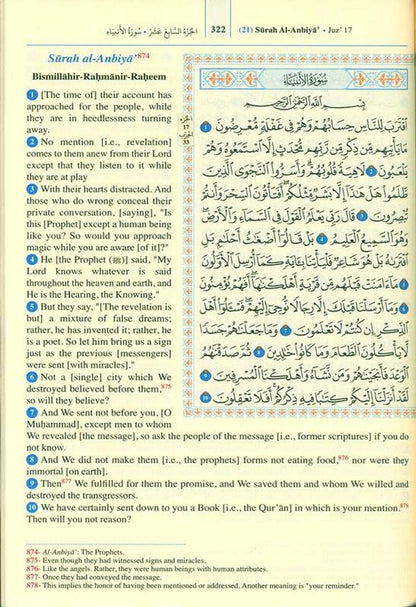 الجزء السابع عشر - سورة الأنبياء 322 (21) Sūrah Al-Anbiyā' • Juz' 17
Sūrah al-Anbiyā'874
Bismillāhir-Raḥmānir-Raḥeem
1 [The time of] their account has
approached for the people, while
they are in heedlessness turning
away.
2 No mention [i.e., revelation]
comes to them anew from their Lord
except that they listen to it while
they are at play
3 With their hearts distracted. And
those who do wrong conceal their
private conversation, [saying], "Is
this [Prophet] except a human being
like you? So would you approach
magic while you are aware [of it]?"
4 He [the Prophet (ﷺ)] said, "My
Lord knows whatever is said
throughout the heaven and earth, and
He is the Hearing, the Knowing."
5 But they say, "[The revelation is
but] a mixture of false dreams;
rather, he has invented it; rather, he
is a poet. So let him bring us a sign
just as the previous [messengers]
were sent [with miracles]."
6 Not a [single] city which We
destroyed believed before them,875
so will they believe?
7 And We sent not before you, [O
Muḥammad], except men to whom
We revealed [the message], so ask the people of the message [i.e., former scriptures] if you do
not know.
8 And We did not make them [i.e., the prophets] forms not eating food,876 nor were they
immortal [on earth].
9 Then877 We fulfilled for them the promise, and We saved them and whom We willed and
destroyed the transgressors.
10 We have certainly sent down to you a Book [i.e., the Qur'ān] in which is your mention.878
Then will you not reason?
الجزء
17
الحزب
33
سورة الأنبياء
بسم الله الرحمن الرحيم
اقْتَرَبَ لِلنَّاسِ حِسَابُهُمْ وَهُمْ فِي غَفْلَةٍ مُّعْرِضُونَ 1
مَا يَأْتِيهِم مِّن ذِكْرٍ مِّن رَّبِّهِم مُّحْدَثٍ إِلَّا اسْتَمَعُوهُ وَهُمْ
يَلْعَبُونَ 2 لَاهِيَةً قُلُوبُهُمْ وَأَسَرُّوا النَّجْوَى الَّذِينَ
ظَلَمُوا هَلْ هَٰذَا إِلَّا بَشَرٌ مِّثْلُكُمْ أَفَتَأْتُونَ السِّحْرَ وَأَنتُمْ
تُبْصِرُونَ 3 قَالَ رَبِّي يَعْلَمُ الْقَوْلَ فِي السَّمَاءِ وَالْأَرْضِ
وَهُوَ السَّمِيعُ الْعَلِيمُ 4 بَلْ قَالُوا أَضْغَاثُ أَحْلَٰمٍ بَلِ
افْتَرَىٰهُ بَلْ هُوَ شَاعِرٌ فَلْيَأْتِنَا بِـَٔايَةٍ كَمَا أُرْسِلَ الْأَوَّلُونَ 5
مَا ءَامَنَتْ قَبْلَهُم مِّن قَرْيَةٍ أَهْلَكْنَٰهَا أَفَهُمْ يُؤْمِنُونَ 6
وَمَا أَرْسَلْنَا قَبْلَكَ إِلَّا رِجَالًا نُّوحِي إِلَيْهِمْ فَسْـَٔلُوا أَهْلَ
الذِّكْرِ إِن كُنتُمْ لَا تَعْلَمُونَ 7 وَمَا جَعَلْنَٰهُمْ جَسَدًا
لَّا يَأْكُلُونَ الطَّعَامَ وَمَا كَانُوا خَٰلِدِينَ 8 ثُمَّ صَدَقْنَٰهُمُ
الْوَعْدَ فَأَنجَيْنَٰهُمْ وَمَن نَّشَاءُ وَأَهْلَكْنَا الْمُسْرِفِينَ 9
لَقَدْ أَنزَلْنَا إِلَيْكُمْ كِتَٰبًا فِيهِ ذِكْرُكُمْ أَفَلَا تَعْقِلُونَ 10
874- Al-Anbiyā': The Prophets.
875- Even though they had witnessed signs and miracles.
876- Like the angels. Rather, they were human beings with human attributes.
877- Once they had conveyed the message.
878- This implies the honor of having been mentioned or addressed. Another meaning is "your reminder."